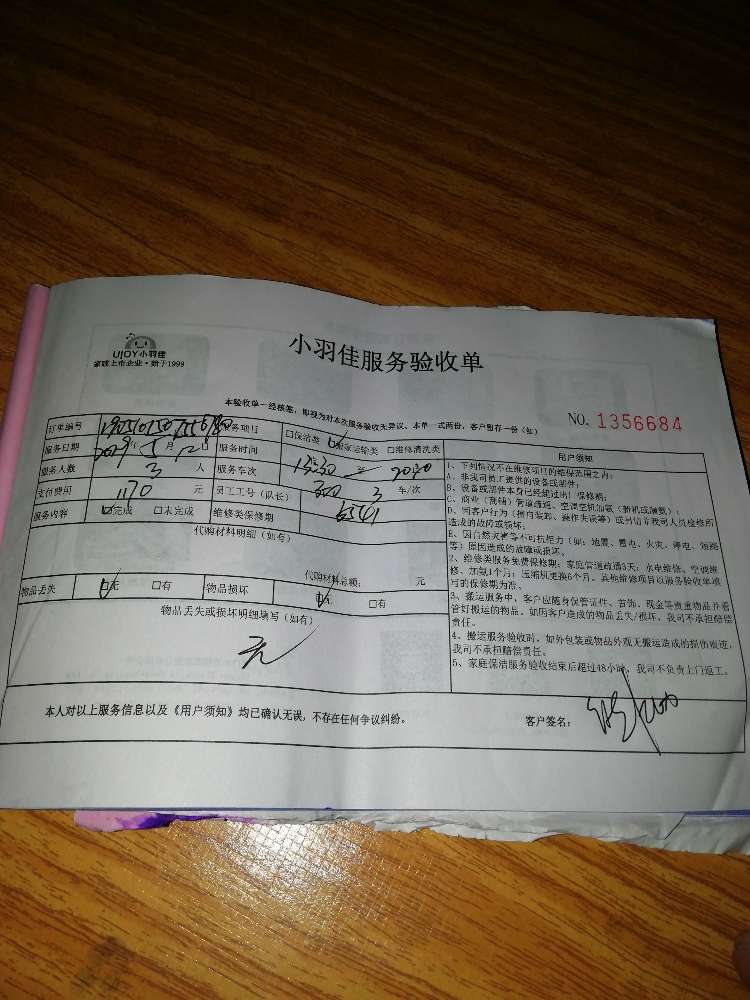 UJOY小羽佳
家政上市企业·始于1999
小羽佳服务验收单
本验收单一经核签，即视为对本次服务验收无异议。本单一式两份，客户留存一份（红）
NO. 1356684
订单编号 服务项目 □保洁类 □搬家运输类 □维修清洗类
服务日期 2019 年 5 月 12 日 服务时间 15:30 至 20:30
服务人数 3 人 服务车次 3 车/次
支付费用 1170 元 员工工号（队长）
服务内容 □完成 □未完成 维修类保修期
代购材料明细（如有）
代购材料总额： 元
物品丢失 □无 □有 物品损坏 □无 □有
物品丢失或损坏明细填写（如有）
无
用户须知
1、下列情况不在维修项目的维保范围之内：
A、非我司员工提供的设备或部件；
B、设备或部件本身已经超过出厂保修期；
C、商业（营铺）管道疏通、空调空机加氨（新机或漏氨）；
D、因客户行为（擅自装卸、操作失误等）或勿信非我司人员检修所
造成的故障或损坏；
E、因自然灾害等不可抗拒力（如：地震、雷电、火灾、停电、短路
等）原因造成的故障或损坏。
2、维修类服务免费保修期：家庭管道疏通3天；水电维修、空调维
修、加氨1个月；压缩机更换6个月。其他维修项目以服务验收单填
写的保修期为准。
3、搬运服务中，客户应随身保管证件、首饰、现金等贵重物品并看
管好搬运的物品。如因客户造成的物品丢失/损坏，我司不承担赔偿
责任。
4、搬运服务验收时，如外包装或物品外观无搬运造成的损伤痕迹，
我司不承担赔偿责任。
5、家庭保洁服务验收结束后超过48小时，我司不负责上门返工。
本人对以上服务信息以及《用户须知》均已确认无误，不存在任何争议纠纷。
客户签名：